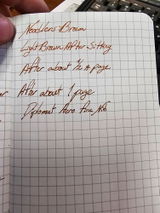 Noodlers Brown
Light Brown After Sitting
After about 1/2 A page
After about 1 page
Diplomat Aero Fine Nib